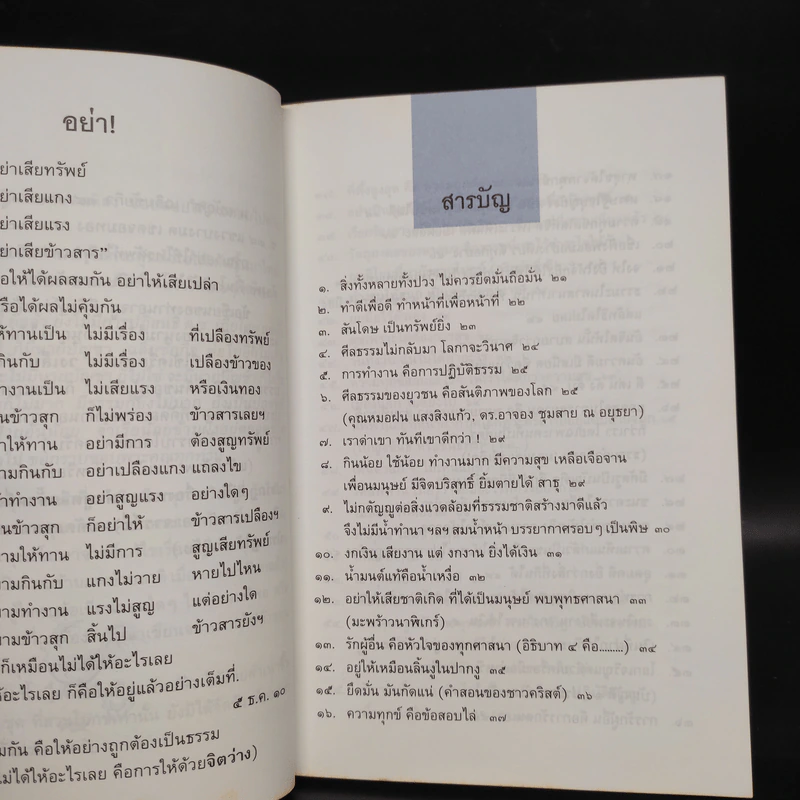 อย่า!
ย่าเสียทรัพย์
ย่าเสียแกง
ย่าเสียแรง
ย่าเสียข้าวสาร”
อให้ได้ผลสมกัน อย่าให้เสียเปล่า
รือได้ผลไม่คุ้มกัน
ห้ทานเป็น ไม่มีเรื่อง ที่เปลืองทรัพย์
กินกับ ไม่มีเรื่อง เปลืองข้าวของ
ำงานเป็น ไม่เสียแรง หรือเงินทอง
นข้าวสุก ก็ไม่พร่อง ข้าวสารเลยฯ
าให้ทาน อย่ามีการ ต้องสูญทรัพย์
ามกินกับ อย่าเปลืองแกง แถลงไข
ทำงาน อย่าสูญแรง อย่างใดๆ
นข้าวสุก ก็อย่าให้ ข้าวสารเปลืองฯ
ามให้ทาน ไม่มีการ สูญเสียทรัพย์
ามกินกับ แกงไม่วาย หายไปไหน
ามทำงาน แรงไม่สูญ แต่อย่างใด
ามข้าวสุก สิ้นไป ข้าวสารยังฯ
ก็เหมือนไม่ได้ให้อะไรเลย
ห้อะไรเลย ก็คือให้อยู่แล้วอย่างเต็มที่.
๕ ธ.ค. ๑๐
มกัน คือให้อย่างถูกต้องเป็นธรรม
ม่ได้ให้อะไรเลย คือการให้ด้วยจิตว่าง)
สารบัญ
๑. สิ่งทั้งหลายทั้งปวง ไม่ควรยึดมั่นถือมั่น ๒๑
๒. ทำดีเพื่อดี ทำหน้าที่เพื่อหน้าที่ ๒๒
๓. สันโดษ เป็นทรัพย์ยิ่ง ๒๓
๔. ศีลธรรมไม่กลับมา โลกาจะวินาศ ๒๔
๕. การทำงาน คือการปฏิบัติธรรม ๒๕
๖. ศีลธรรมของยุวชน คือสันติภาพของโลก ๒๕
(คุณหมอฝน แสงสิงแก้ว, ดร.อาจอง ชุมสาย ณ อยุธยา)
๗. เราด่าเขา ทันทีเขาดีกว่า ! ๒๙
๘. กินน้อย ใช้น้อย ทำงานมาก มีความสุข เหลือเจือจาน
เพื่อนมนุษย์ มีจิตบริสุทธิ์ ยิ้มตายได้ สาธุ ๒๙
๙. ไม่กตัญญูต่อสิ่งแวดล้อมที่ธรรมชาติสร้างมาดีแล้ว
จึงไม่มีน้ำทำนา ฯลฯ สมน้ำหน้า บรรยากาศรอบๆ เป็นพิษ ๓๐
๑๐. งกเงิน เสียงาน แต่ งกงาน ยิ่งได้เงิน ๓๑
๑๑. น้ำมนต์แท้คือน้ำเหงื่อ ๓๒
๑๒. อย่าให้เสียชาติเกิด ที่ได้เป็นมนุษย์ พบพุทธศาสนา ๓๓
(มะพร้าวนาฬิเกร์)
๑๓. รักผู้อื่น คือหัวใจของทุกศาสนา (อิธิบาท ๔ คือ........) ๓๔
๑๔. อยู่ให้เหมือนลิ้นงูในปากงู ๓๕
๑๕. ยึดมั่น มันกัดแน่ (คำสอนของชาวคริสต์) ๓๖
๑๖. ความทุกข์ คือข้อสอบไล่ ๓๗